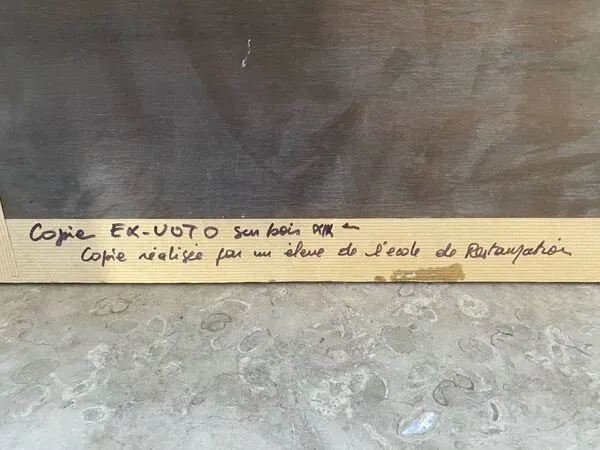 Copie EX-VOTO sur bois XIXe
Copie réalisée par un élève de l'école de Restauration